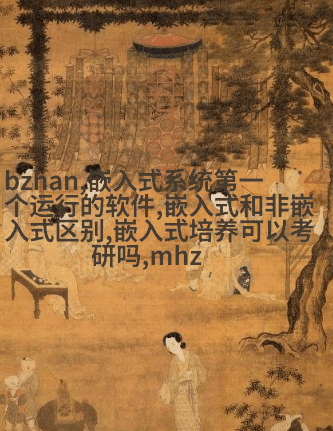 bzhan,嵌入式系统第一
个运行的软件,嵌入式和非嵌
入式区别,嵌入式培养可以考
研吗,mhz